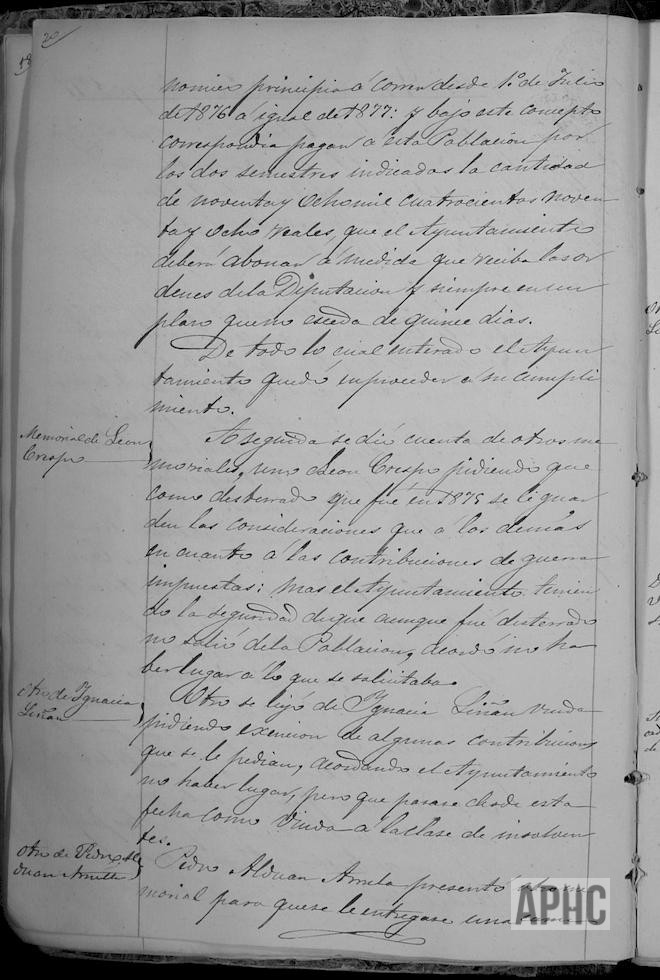 20
nomico principia á correr desde 1º de Julio
de 1876 á igual de 1877: y bajo este concepto
correspondia pagar á esta Poblacion por
los dos semestres indicados la cantidad
de noventa y ocho mil cuatrocientos noven
ta y ocho reales, que el Ayuntamiento
deberá abonar á medida que reciba las or
denes de la Diputacion y siempre en un
plazo que no esceda de quince dias.
De todo lo cual enterado el Ayun
tamiento quedó en proceder á su cumpli
miento.
Memorial de Leon
Crespo
A seguida se dió cuenta de otros me
moriales, uno Leon Crespo pidiendo que
como desterrado que fué en 1875 se le guar
den las consideraciones que á los demas
en cuanto á las contribuciones de guerra
impuestas: mas el Ayuntamiento tenien
do la seguridad de que aunque fué desterrado
no salió de la Poblacion, acordó no ha
ber lugar á lo que se solicitaba.
Otro de Ignacia
Liñan
Otro se leyó de Ignacia Liñan viuda
pidiendo exencion de algunas contribuciones
que se le pedian, acordando el Ayuntamiento
no haber lugar, pero que pasase desde esta
fecha como viuda á la clase de insolven
tes.
otro de Pedro Al
duan Arreta
Pedro Alduan Arreta presentó otro me
morial para que se le entregase una
APHC